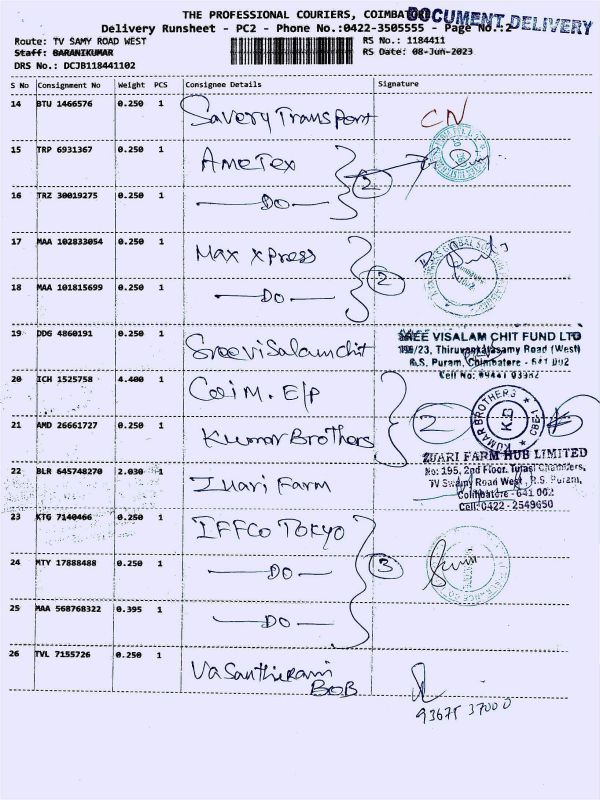 THE PROFESSIONAL COURIERS, COIMBATORE
DOCUMENT DELIVERY
Delivery Runsheet - PC2 - Phone No.:0422-3505555 - Page No.:2
Route: TV SAMY ROAD WEST
RS No.: 1184411
Staff: BARANIKUMAR
RS Date: 08-Jun-2023
DRS No.: DCJB118441102
S No Consignment No Weight PCS Consignee Details Signature
14 BTU 1466576 0.250 1 Savery Transport CN
15 TRP 6931367 0.250 1 Ametex 2
16 TRZ 30019275 0.250 1 —DO—
17 MAA 102833054 0.250 1 Max xpress 2
18 MAA 101815699 0.250 1 —DO—
19 DDG 4860191 0.250 1 Sreevisalamchit
SREE VISALAM CHIT FUND LTD
196/23, Thiruvenkatasamy Road (West)
R.S. Puram, Coimbatore - 641 002
Cell No:
20 ICH 1525758 4.400 1 Coim. E/P 2
KUMAR BROTHERS
K.B
CBE-1
21 AMD 26661727 0.250 1 Kumar Brothers
ZUARI FARM HUB LIMITED
No: 195, 2nd Floor, Tulasi Chambers,
TV Swamy Road West, R.S. Puram,
Coimbatore - 641 002
Cell: 0422 - 2549650
22 BLR 645748270 2.030 1 Zuari Farm
23 KTG 7140466 0.250 1 IFFCo Tokyo
24 MTY 17888488 0.250 1 —DO— 3
25 MAA 568768322 0.395 1 —DO—
26 TVL 7155726 0.250 1 Vasanthirani
BOB
93675 37000